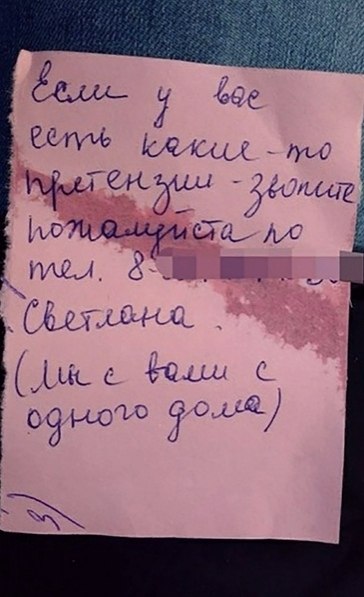 Если у вас
есть какие-то
претензии - звоните
пожалуйста по
тел. 8-
Светлана.
(Мы с вами с
одного дома)